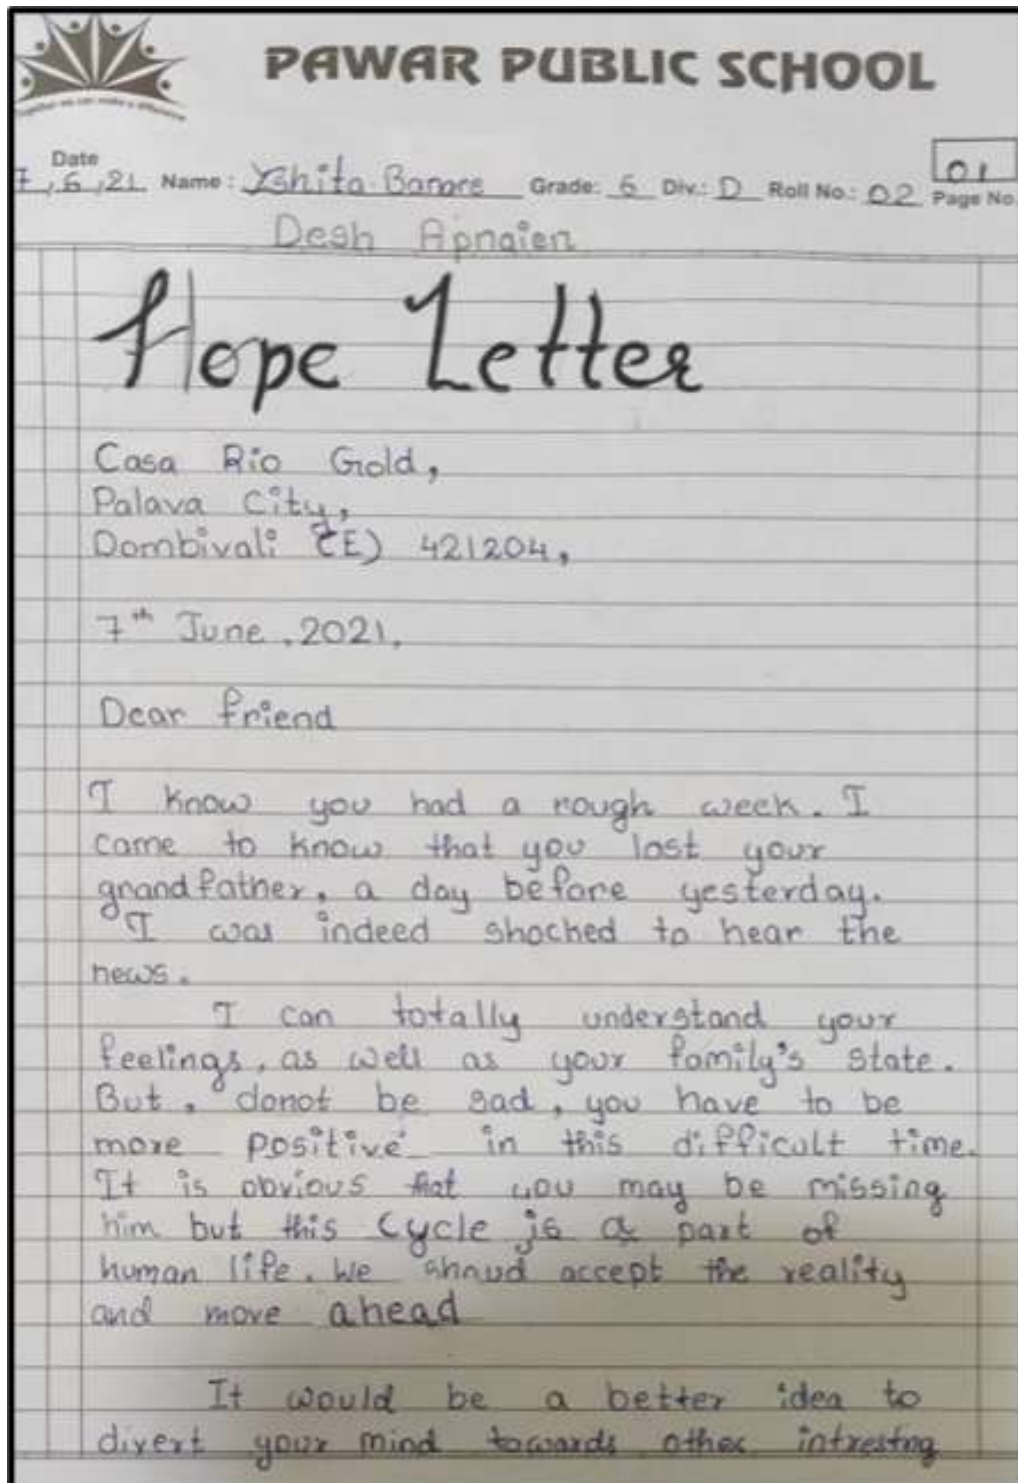 Together we can make a difference
PAWAR PUBLIC SCHOOL
Date
7, 6, 21 Name: Yshita Banare Grade: 6 Div.: D Roll No.: 02
01
Page No.
Desh Apnaien
Hope Letter
Casa Rio Gold,
Palava City,
Dombivali (E) 421204,
7th June, 2021.
Dear friend
I know you had a rough week. I
came to know that you lost your
grandfather, a day before yesterday.
I was indeed shocked to hear the
news.
I can totally understand your
feelings, as well as your family's state.
But, donot be sad, you have to be
more positive in this difficult time.
It is obvious that you may be missing
him but this cycle is a part of
human life. We shoud accept the reality
and move ahead
It would be a better idea to
divert your mind towards other intrestng